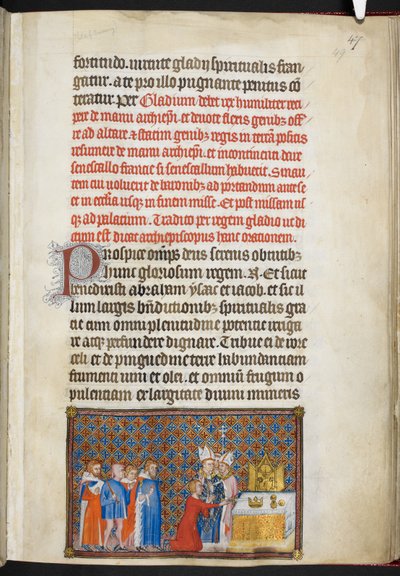 47
49
fortitudo. virtute gladij spiritualis fran
gatur. ac te pro illo pugnante penitus cō
teratur. Per Gladium debet rex humiliter reci
pere de manu archiepi. et devote flexis genibz offe
re ad altare. et statim genibz regis in terrā positis
resumere de manu archiepi. et incontinēti dare
senescallo francie si senescallum habuerit. Sin au
tem cui voluerit de baronibz ad portandum ante se
et in ecclīa usqz in finem misse. et post missam us
qz ad palacium. Tradito per regem gladio ut di
ctum est dicat archiepiscopus hanc orationem.
Prospice omps deus serenis obtutibz
hunc gloriosum regem. N. Et sicut
benedixisti abraham ysaac et iacob. et sic il
lum largis bndictionibz spiritualis gra
tie cum omni plenitudine potentie irriga
re atqz perfundere dignare. Tribue ei de rore
celi et de pinguedine terre habundantiam
frumenti vini et olei. et omniū frugum o
pulentiam ex largitate divini muneris